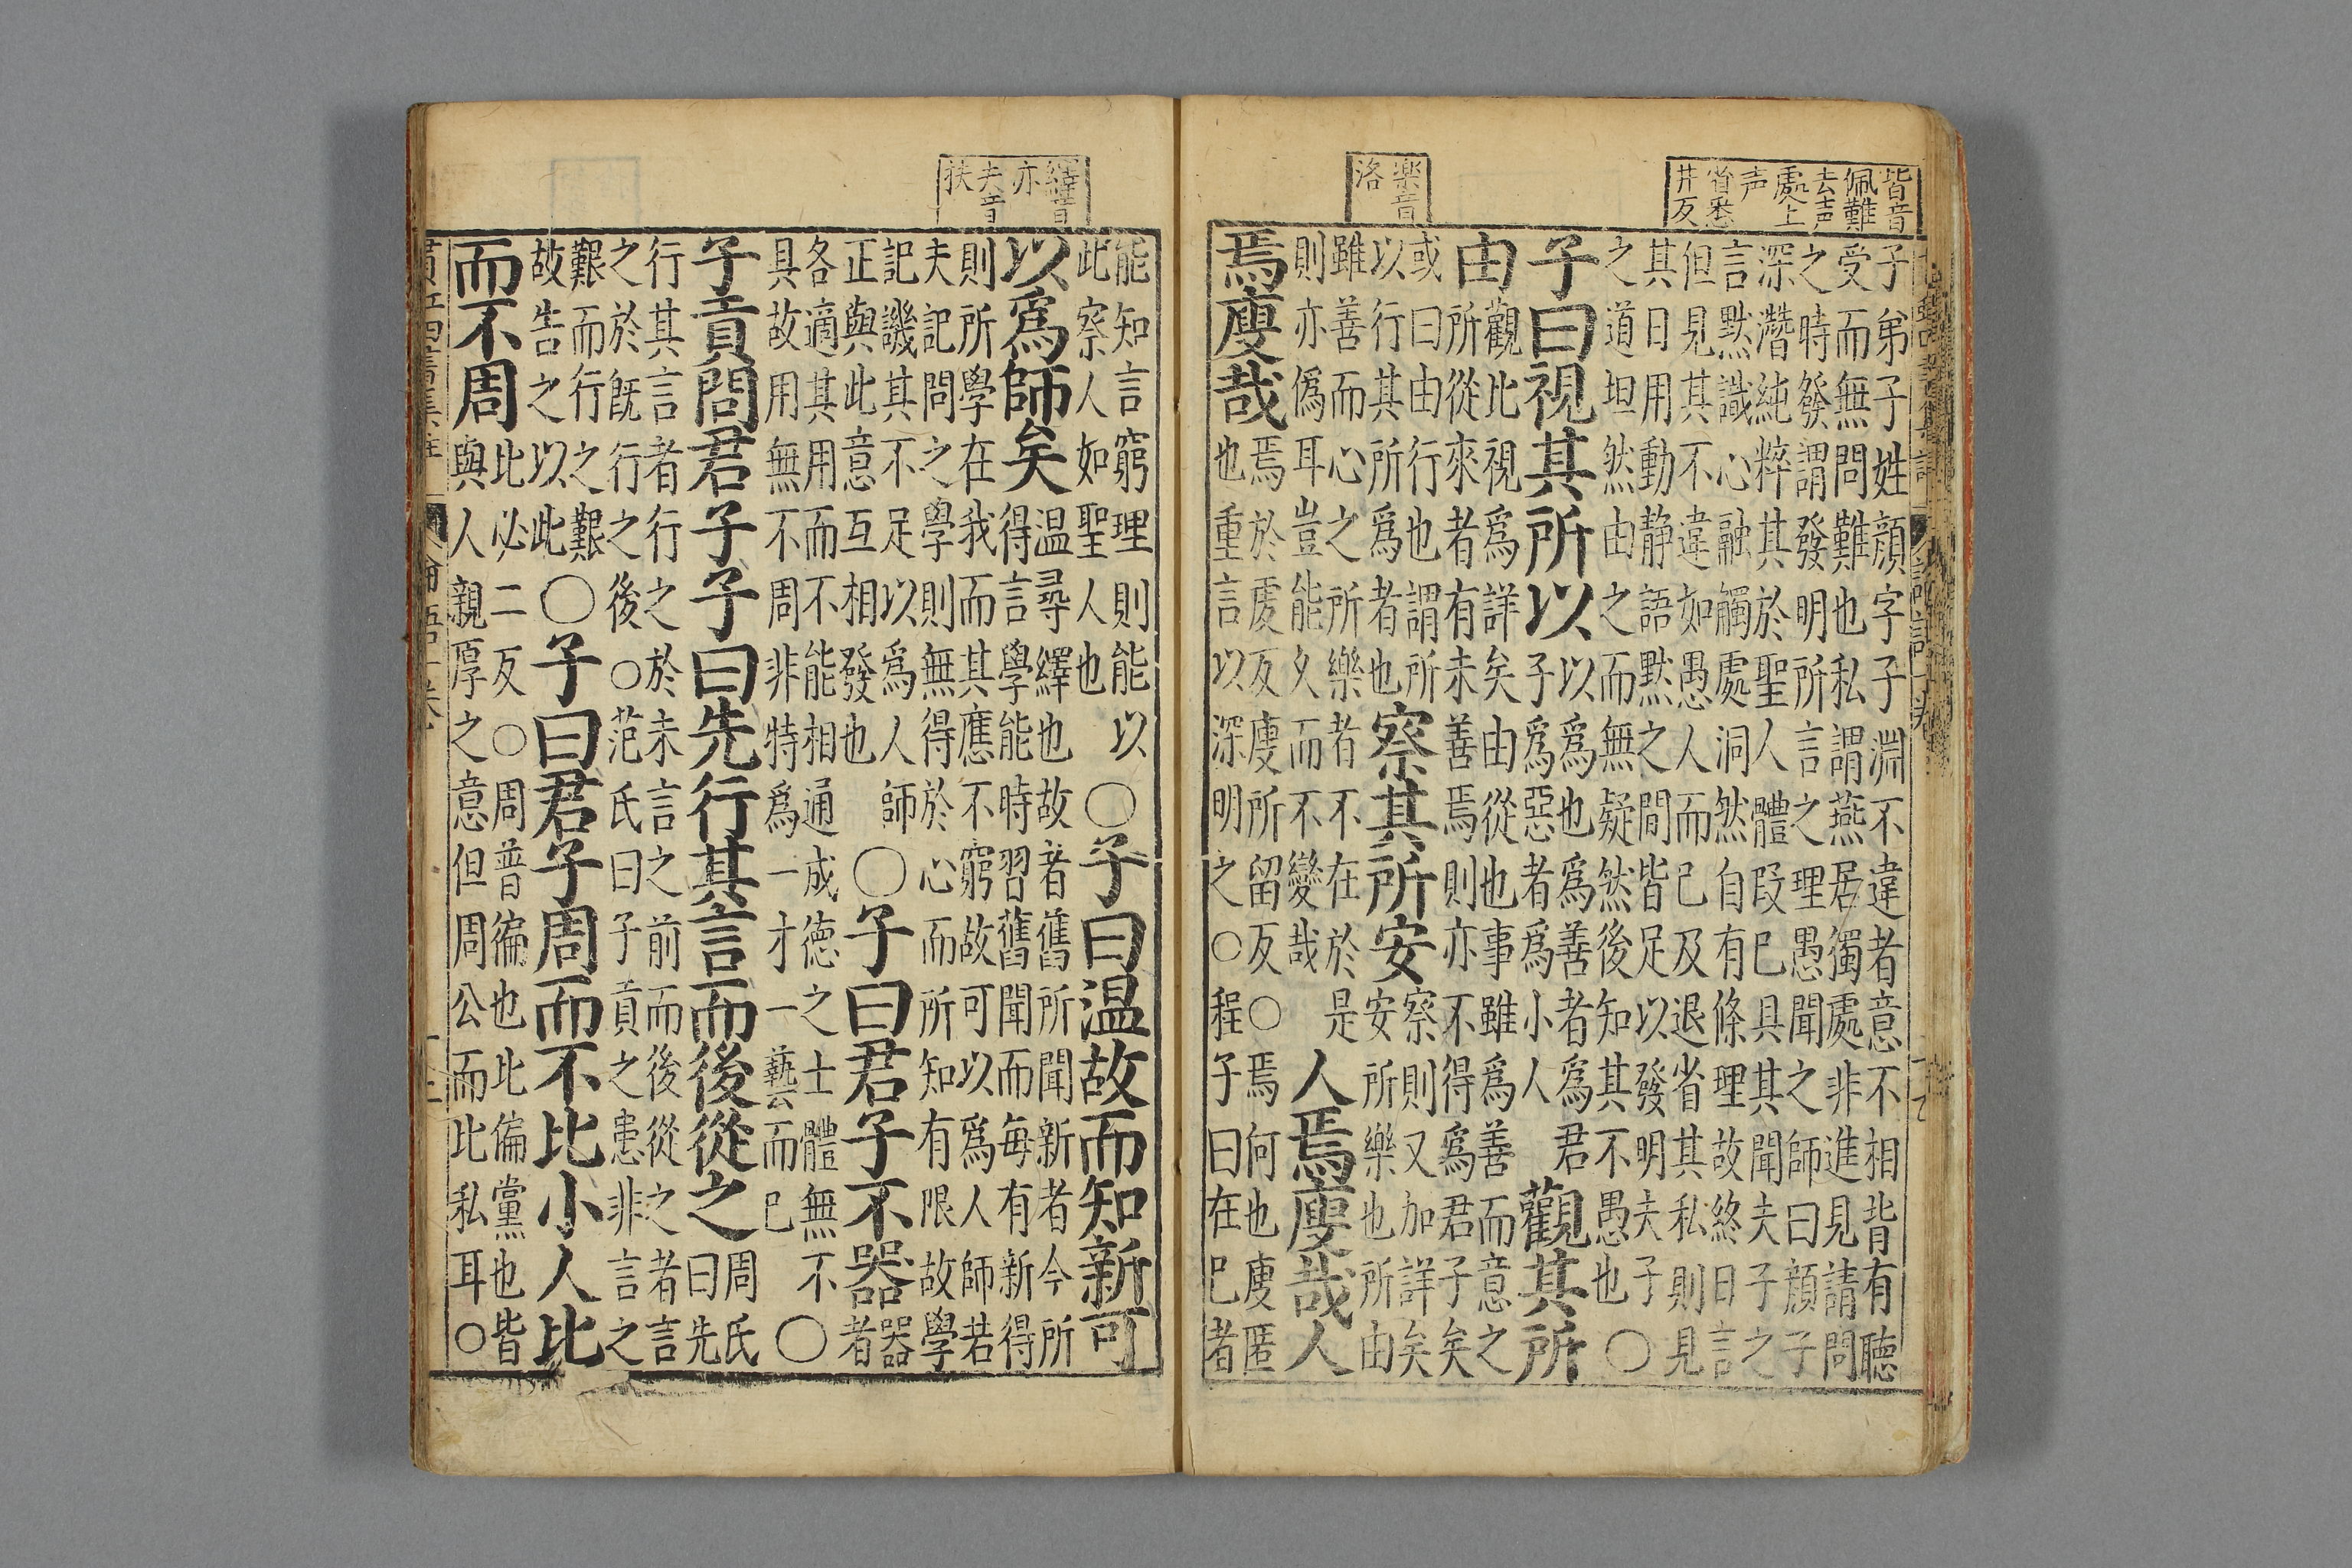 皆音
佩難
去声
處上
声
省悉
井反
子弟子姓顔字子淵不違者意不相背有聽
受而無問難也私謂燕居獨處非進見請問
之時發謂發明所言之理愚聞之師曰顔子
深潛純粹其於聖人體段已具其聞夫子之
言默識心融觸處洞然自有條理故終日言
但見其不違如愚人而已及退省其私則見
其日用動静語默之間皆足以發明夫子
之道坦然由之而無疑然後知其不愚也
○
子曰視其所以
以爲也爲善者爲君
子爲惡者爲小人
觀其所
由
觀比視爲詳矣由從也事雖爲善而意之
所從來者有未善焉則亦不得爲君子矣
或曰由行也謂所
以行其所爲者也
察其所安
察則又加詳矣
安所樂也所由
樂音
洛
雖善而心之所樂者不在於是
則亦僞耳豈能久而不變哉
人焉廋哉人
焉廋哉
焉於䖍反廋所留反○焉何也廋匿
也重言以深明之○程子曰在已者
能知言窮理則能以
此察人如聖人也
○子曰温故而知新可
繹音
亦
夫音
扶
以爲師矣
温尋繹也故者舊所聞新者今所
得言學能時習舊聞而每有新得
則所學在我而其應不窮故可以爲人師若
夫記問之學則無得於心而所知有限故學
記譏其不足以爲人師
正與此意互相發也
○子曰君子不器
器
者
各適其用而不能相通成德之士體無不
具故用無不周非特爲一才一藝而已
○
子貢問君子子曰先行其言而後從之
周氏
曰先
行其言者行之於未言之前而後從之者言
之於既行之後○范氏曰子貢之患非言之
艱而行之艱
故告之以此
○子曰君子周而不比小人比
而不周
比必二反○周普徧也比偏黨也皆
與人親厚之意但周公而比私耳○